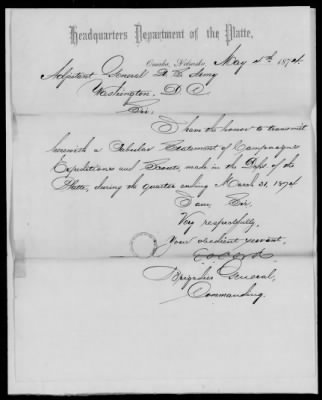 Headquarters Department of the Platte,
Omaha, Nebraska, May 4th 1874.
Adjutant General U. S. Army
Washington, D. C.
Sir:
I have the honor to transmit
herewith a Tabular Statement of Campaigns
Expeditions and Scouts, made in the Dept of the
Platte, during the Quarter ending March 31, 1874.
I am, Sir,
Very respectfully,
Your obedient servant,
Brigadier General,
Commanding.